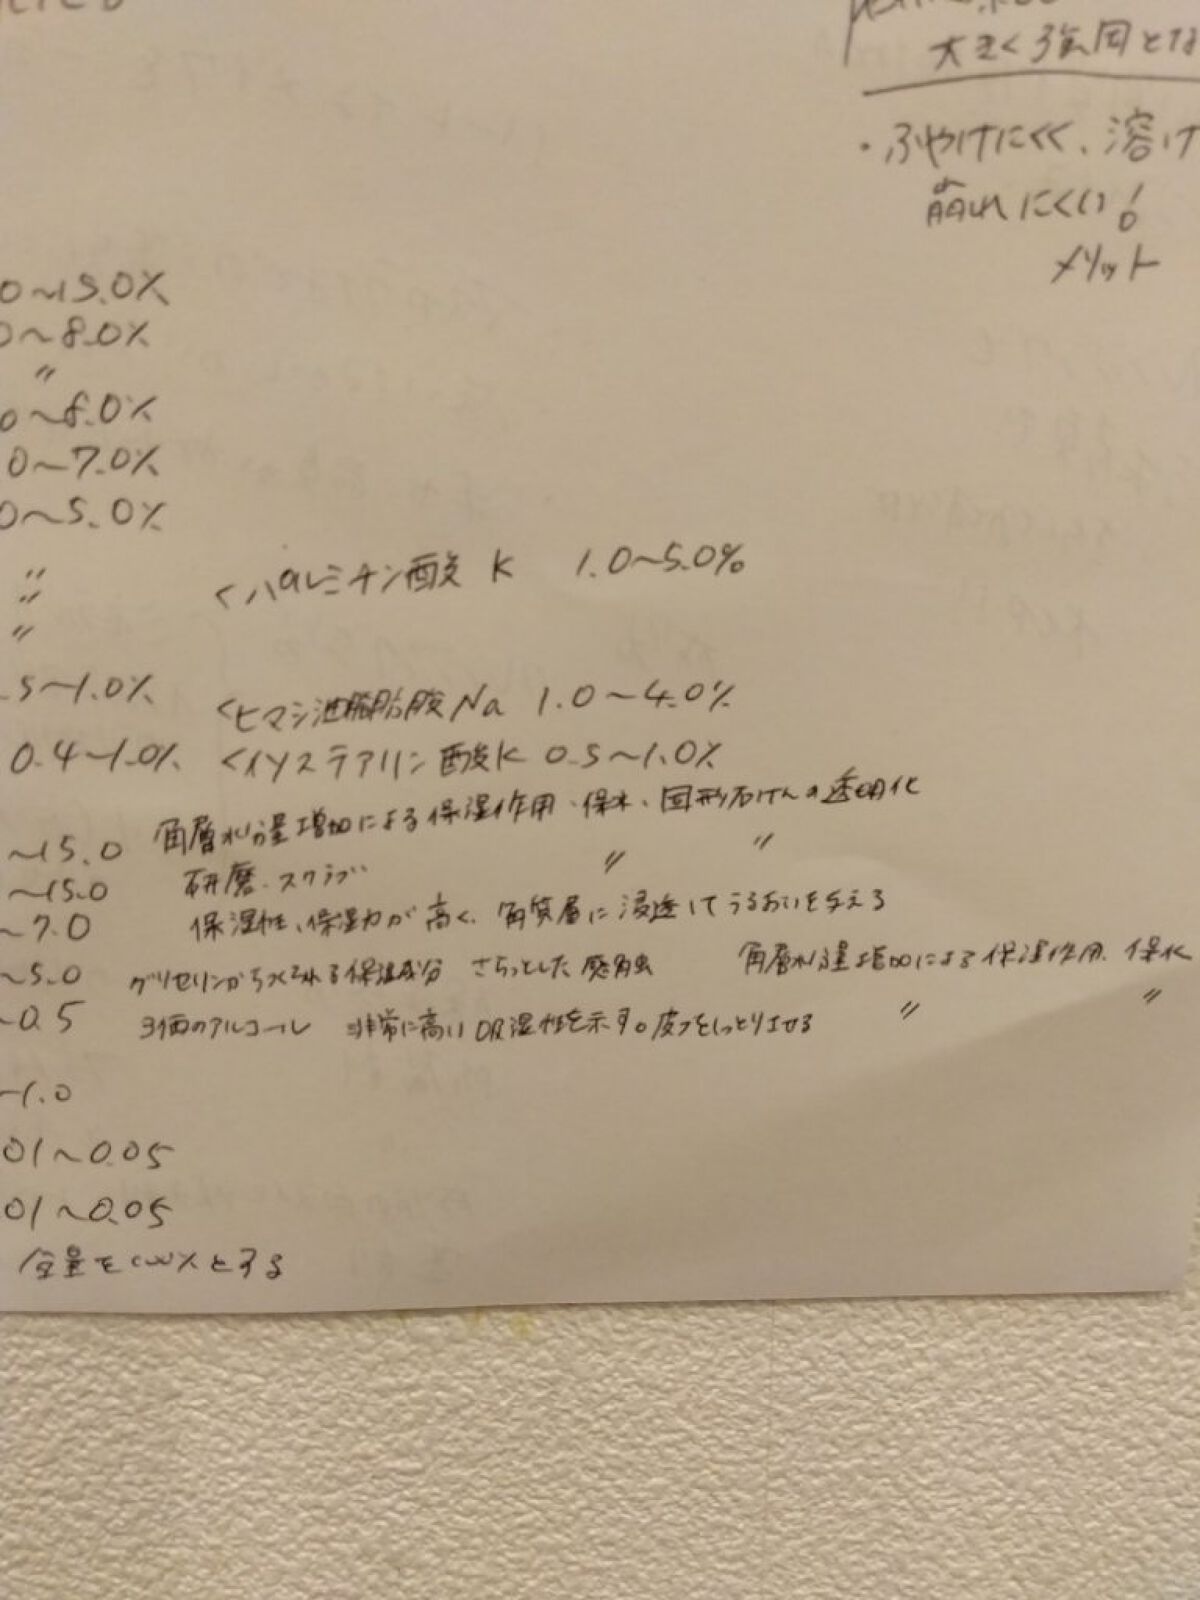 大きく強固とな
・ふやけにくく、溶け
崩れにくい!
メリット
0~15.0%
0~8.0%
〃
0~8.0%
0~7.0%
0~5.0%
〃 <パルミチン酸K 1.0~5.0%
〃
〃
.5~1.0% <ヒマシ油脂肪酸Na 1.0~4.0%
0.4~1.0% <イソステアリン酸K 0.5~1.0%
~15.0 角層水分量増加による保湿作用・保水、固形石けんの透明化
~15.0 研磨・スクラブ 〃 〃
~7.0 保湿性、保湿力が高く、角質層に浸透してうるおいを与える
~5.0 グリセリンからつくられる保湿成分 さらっとした感触 角層水分量増加による保湿作用、保水
~0.5 3価のアルコール 非常に高い吸湿性を示す。皮フをしっとりさせる 〃 〃
~1.0
01~0.05
01~0.05
全量を100%とする